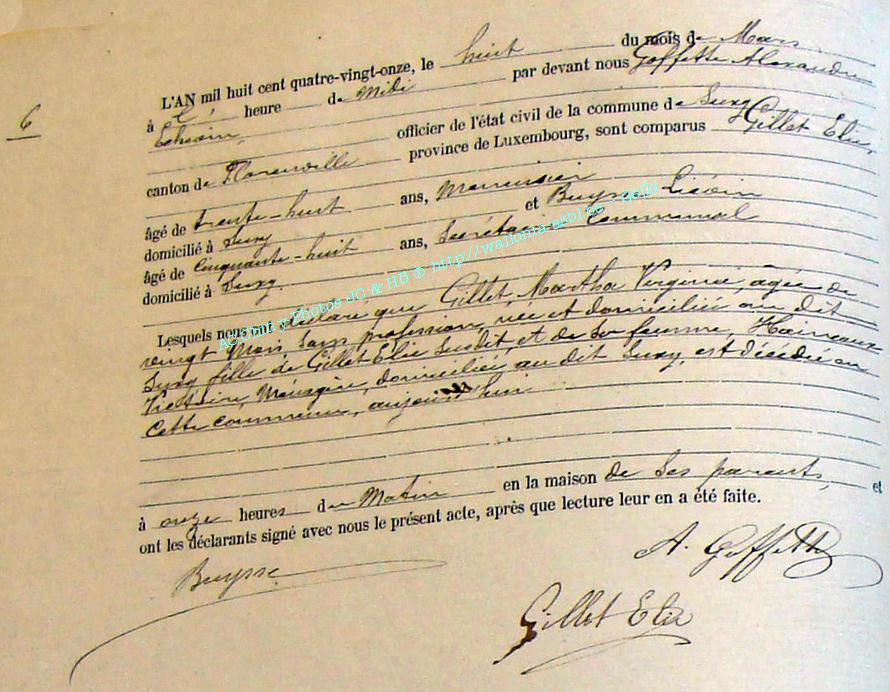 6
L'AN mil huit cent quatre-vingt-onze, le huit du mois de Mars
à l' heure de Midi par devant nous Goffette Alexandre
Echevin, officier de l'état civil de la commune de Suxy
canton de Florenville province de Luxembourg, sont comparus Gillet Elie,
âgé de trente-huit ans, Menuisier
domicilié à Suxy et Buysse Liévin
âgé de Cinquante-huit ans, Secrétaire Communal
domicilié à Suxy.
Lesquels nous ont déclaré que Gillet Martha Virginie, agée de
vingt Mois Sans profession, née et domiciliée au dit
Suxy fille de Gillet Elie Susdit, et de Sa femme, Haineaux
Victoire, Ménagère, domiciliée au dit Suxy, est décédée en
Cette commune, aujourd'hui
à onze heures du Matin en la maison de Ses parents, et
ont les déclarants signé avec nous le présent acte, après que lecture leur en a été faite.
A. Goffette
Buysse
Gillet Elie
JG & HB © http://wallonia-asbl.be